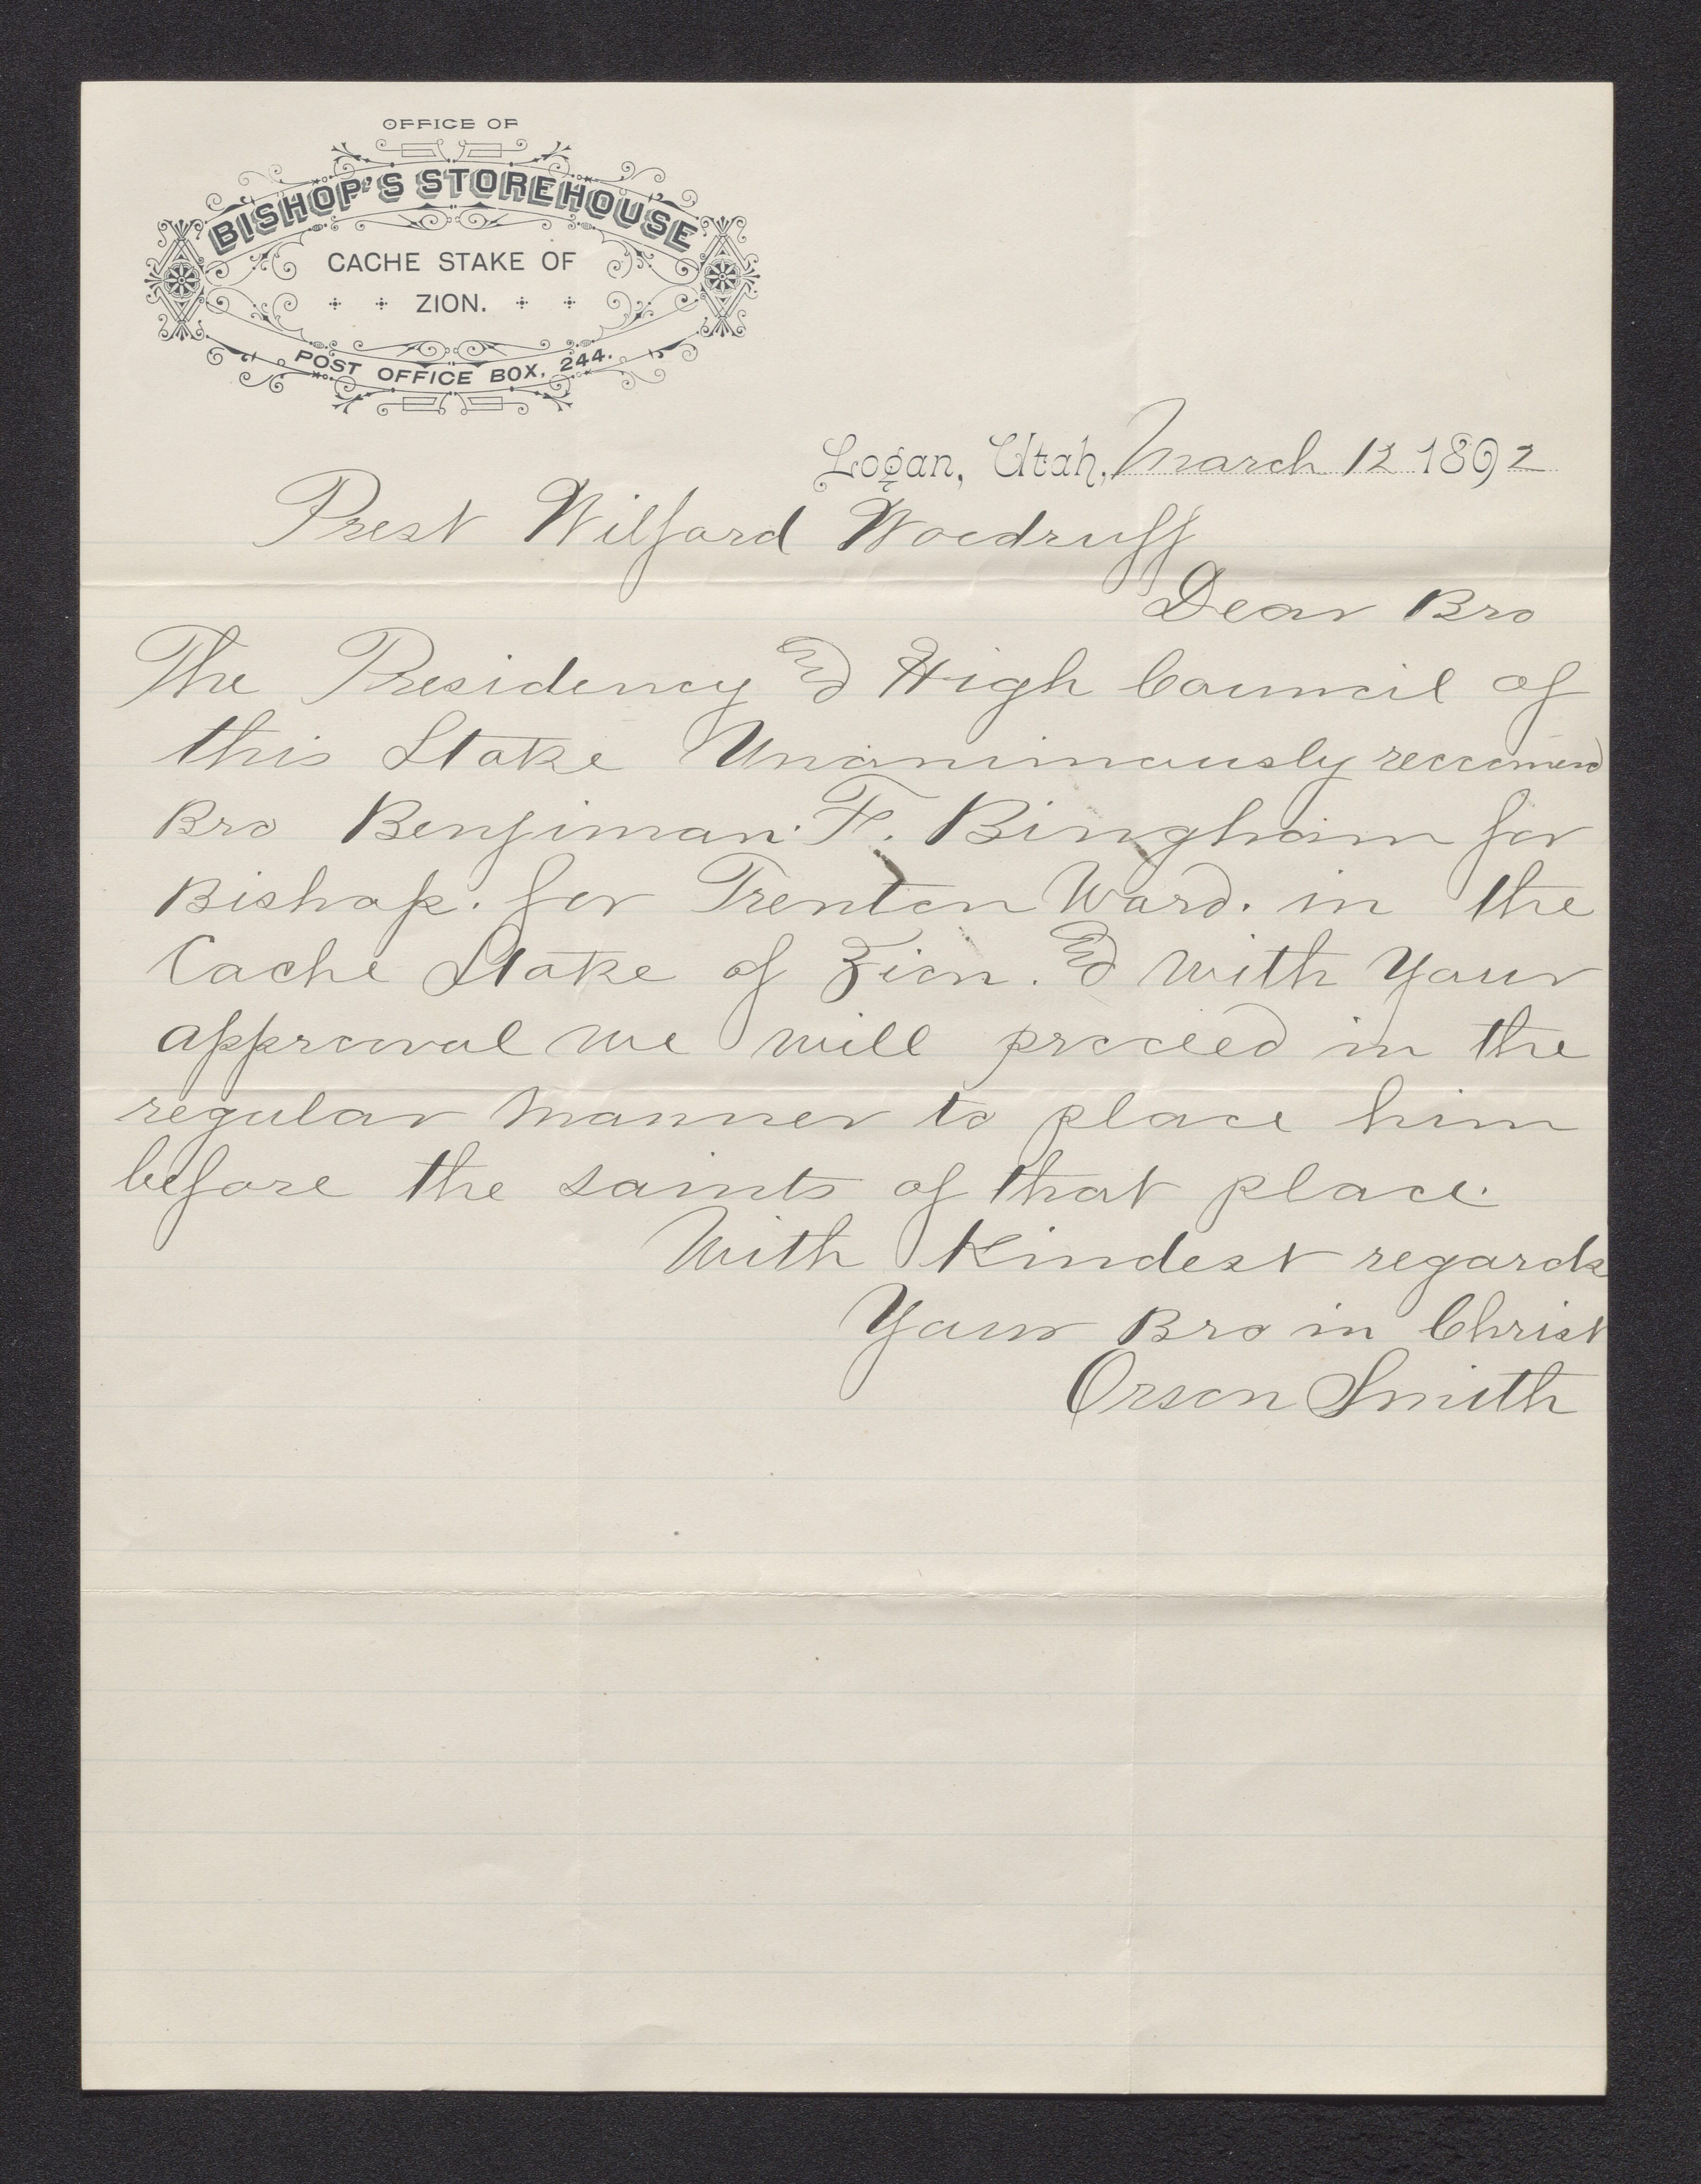 OFFICE OF
BISHOP'S STOREHOUSE
CACHE STAKE OF
ZION.
POST OFFICE BOX, 244.
Logan, Utah, March 12 1892
Prest Wilford Woodruff
Dear Bro
The Presidency and High Council of
this Stake Unanimously reccomend
Bro Benjiman F. Bingham for
Bishop. for Trenton Ward. in the
Cache Stake of Zion. and with Your
approval we will proceed in the
regular manner to place him
before the saints of that place.
With Kindest regards
Your Bro in Christ
Orson Smith